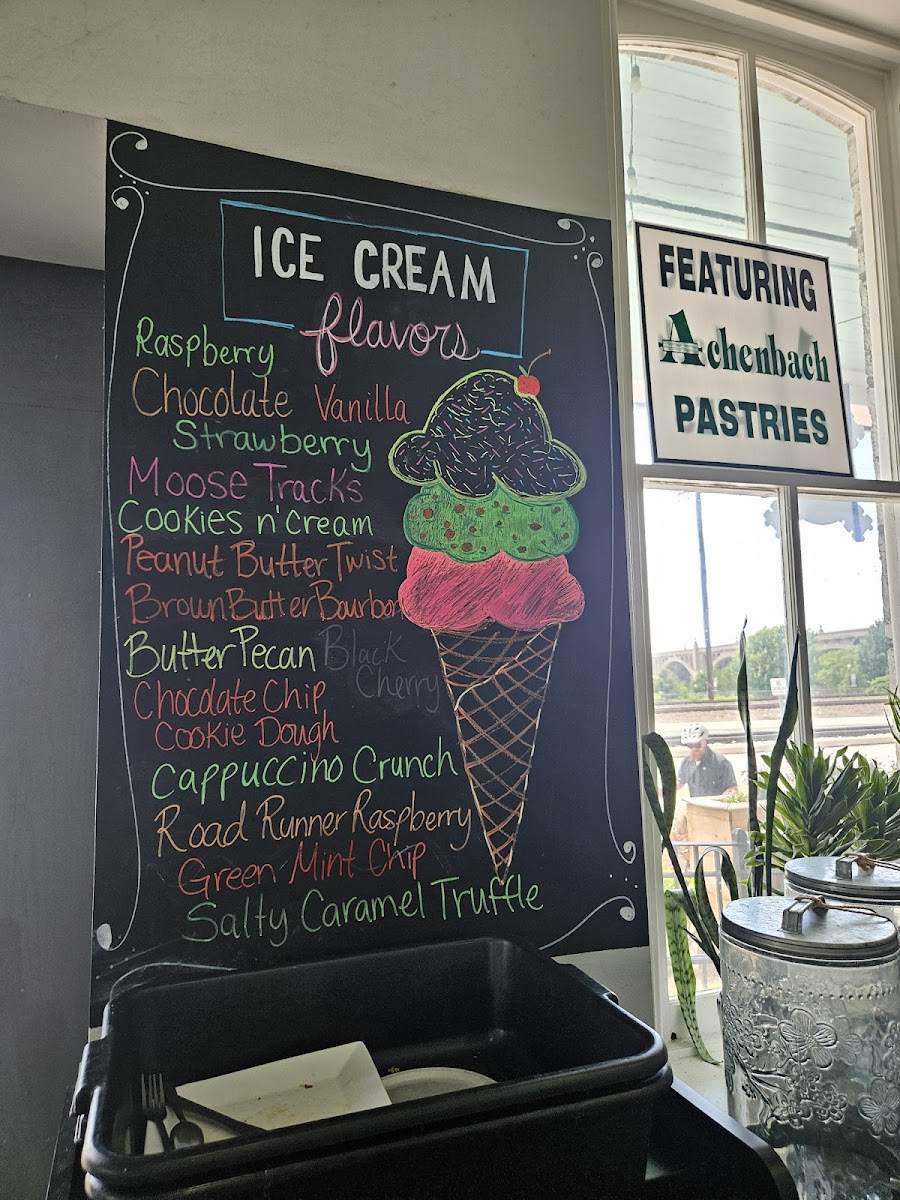 ICE CREAM
flavors
Raspberry
Chocolate Vanilla
Strawberry
Moose Tracks
Cookies n' Cream
Peanut Butter Twist
Brown Butter Bourbon
Butter Pecan
Black
Cherry
Chocolate Chip
Cookie Dough
Cappuccino Crunch
Road Runner Raspberry
Green Mint Chip
Salty Caramel Truffle
FEATURING
Achenbach
PASTRIES